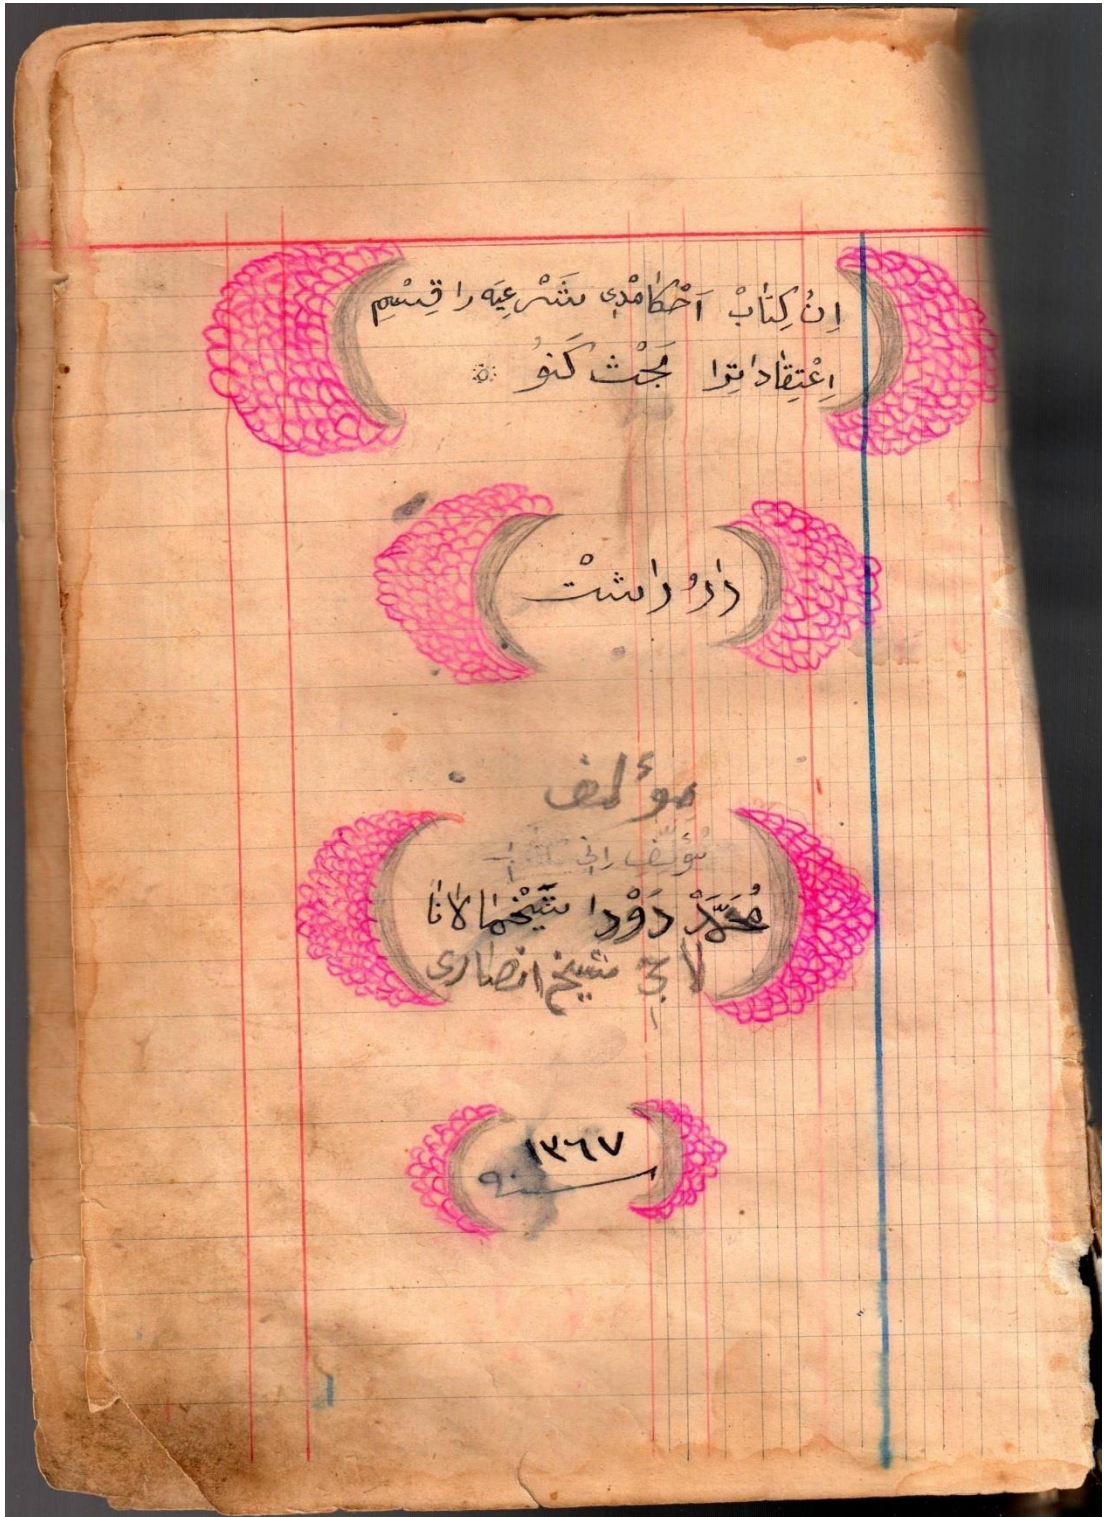 اِنُ كِتَابْ اَحْكَامْدِى شَرْعِيَه رَا قِسْمِ
اِعْتِقَادَاتِرَا بَحْث كَنوُ
مؤلف
مُؤلِّف
مُحَمَّدْ دَوْدا شَيْخْمَالانَا
شيخ انصارى
١٣٦٧
سنه